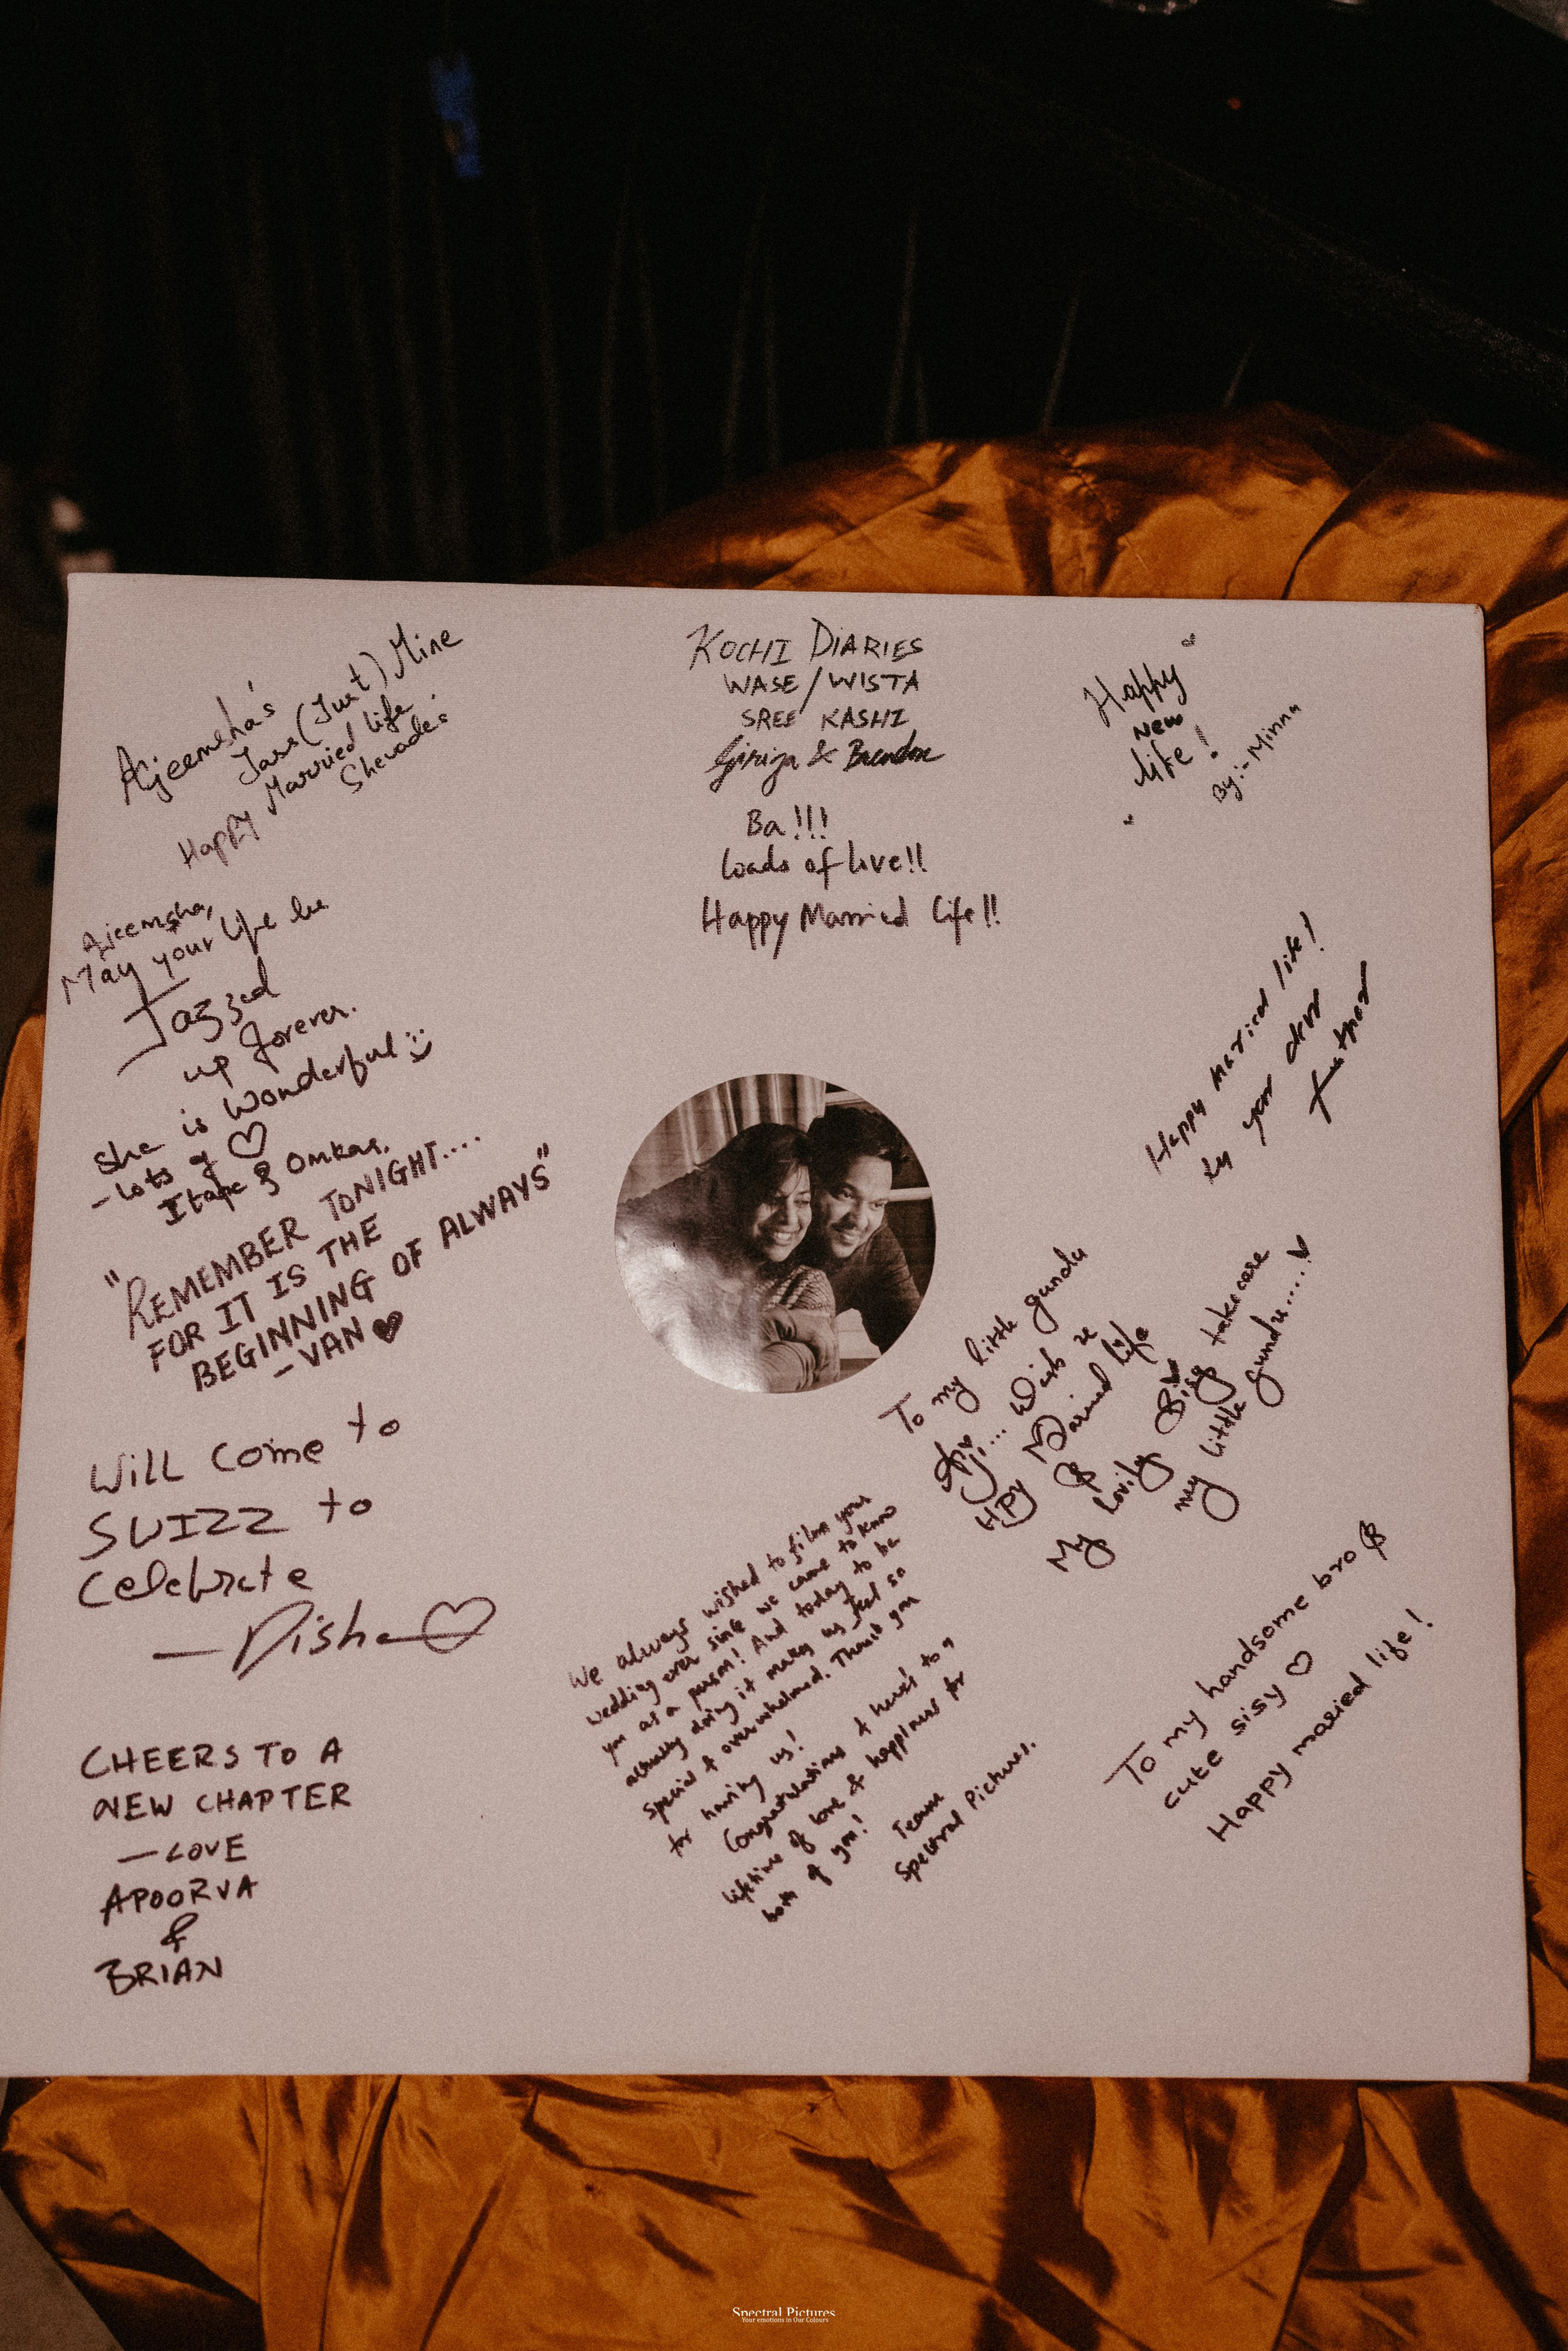 Ajeemsha's
Jass (Just) Mine
Happy Married life
Shevades
Ajeemsha,
May your life be
Jazzed
up forever.
She is Wonderful
- Lots of ♡
& Omkar.
"REMEMBER TONIGHT....
FOR IT IS THE
BEGINNING OF ALWAYS"
- VAN ♥
Will come to
SWIZZ to
Celebrate
- Disha ♡
CHEERS TO A
NEW CHAPTER
- LOVE
APOORVA
&
BRIAN
KOCHI DIARIES
WASE/WISTA
SREE KASHI
Girija & Brendon
Ba!!!
Loads of love!!
Happy Married Life!!
Happy
New
life!
By:- Minna
Happy Maried life!
by your dear
To my little gundu
Aji... Wish u
HPY Married life
& takecare
My lovily Bisy
my little gundu.....♥
We always wished to film your
wedding ever since we came to know
you as a person! And today to be
actually doing it makes us feel so
special & overwhelmed. Thank you
for having us!
Congratulations & here's to a
lifetime of love & happiness for
both of you!
Team
Spectral Pictures.
To my handsome bro &
cute sisy ♡
Happy maried life!
Spectral Pictures
Your emotions in Our Colours